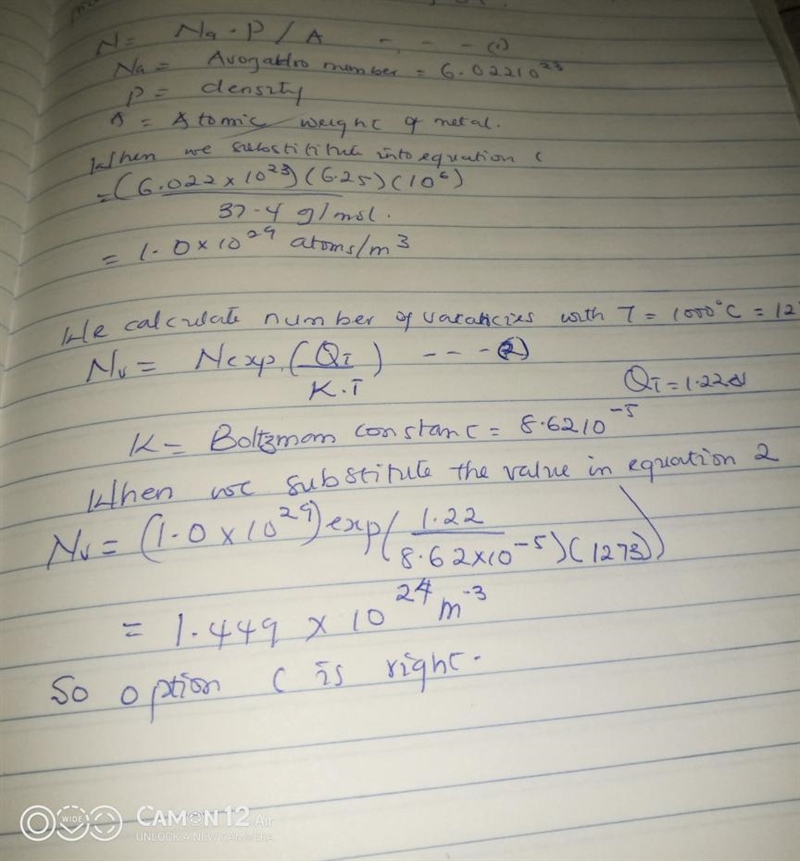 N = Na . P / A - - - (1)
Na = Avogadro number = 6.02210²³
P = density
A = Atomic weight of metal.
When we substitute into equation (
= (6.022 × 10²³)(6.25)(10⁶)
37.4 g/mol.
= 1.0 × 10²⁹ atoms/m³
We calculate number of vacancies with T = 1000°C = 127
Nv = N exp (Qi) - - - (2)
K.T
Qi = 1.22
K = Boltzman constanc = 8.6210⁻⁵
When we substitute the value in equation 2
Nv = (1.0 × 10²⁹) exp (1.22
8.62×10⁻⁵)(1273))
= 1.449 × 10²⁴ m⁻³
So option C is right.
WIDE CAMON 12 Air
UNLOCK A NEW CAMERA